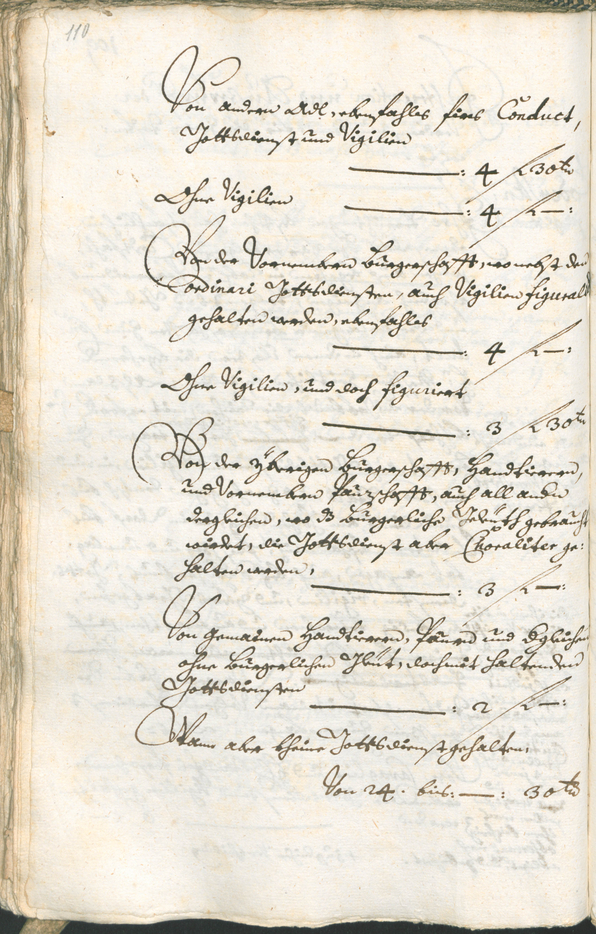 110
Von andern Adl, ebenfahls fürs Conduct,
Gottsdienst und Vigilien
—: 4 f 30 kr
Ohne Vigilien —: 4 f —:
Von der Vornembern Burgerschafft, wo nebst den
ordinari Gottsdiensten, auch Vigilien figural
gehalten werden, ebenfahls
—: 4 f —:
Ohne Vigilien, und doch figuriert
—: 3 f 30 kr
Von der yberigen Burgerschafft, Handtierern,
und Vornembern Paurschafft, auch all andn
dergleichen, wo ds Burgerliche Geleüth gebraucht
wirdet, die Gottsdienst aber Choraliter ge:
halten werden,
—: 3 f —:
Von gemainen Handtierern, Paurn und dgleichen
ohne Burgerlichen Gleüt, doch mit haltenden
Gottsdiensten
—: 2 f —:
Wann aber kheine Gottsdienst gehalten,
Von 24. bis: —: 30 kr